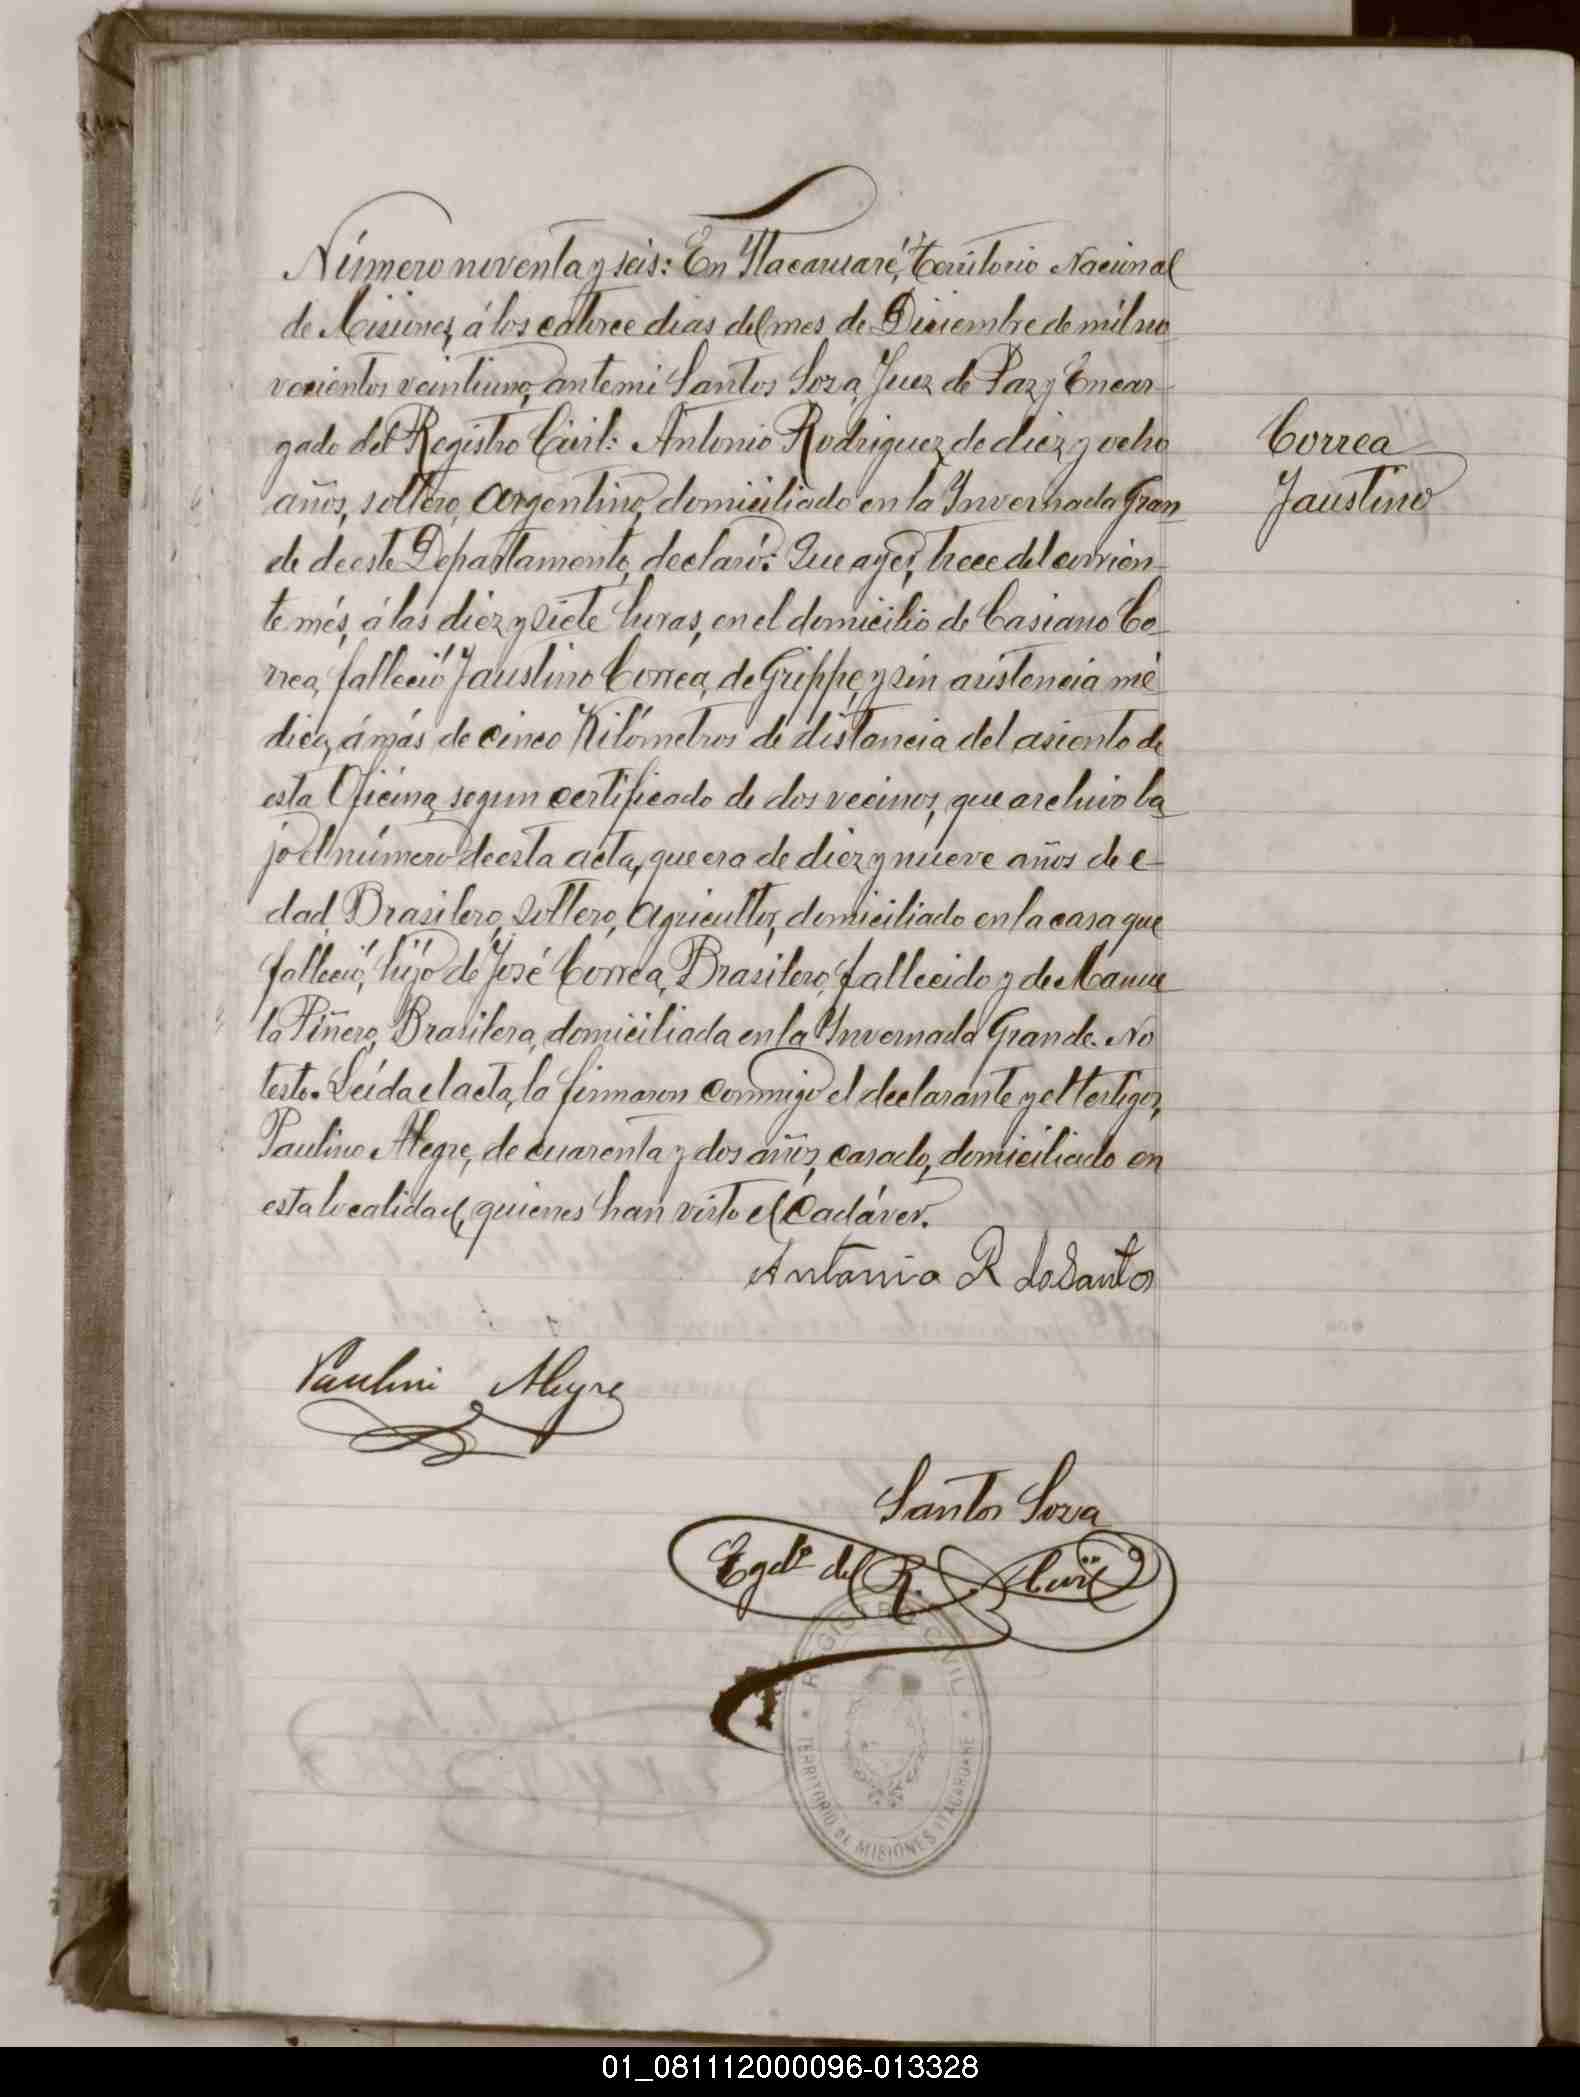 Número noventa y seis: En Ytacaruaré, Territorio Nacional
de Misiones, á los catorce dias del mes de Diciembre de mil no
vecientos veintiuno, ante mi Santos Soza, Juez de Paz y Encar-
gado del Registro Civil: Antonio Rodriguez, de diez y ocho
años, soltero, Argentino, domiciliado en la Invernada Gran
de de este Departamento, declaró: Que ayer, trece del corrien-
te més, á las diez y siete horas, en el domicilio de Casiano Co-
rrea, falleció Faustino Correa, de Grippe, y sin asistencia mé
dica, á más de cinco Kilómetros de distancia del asiento de
esta Oficina, segun certificado de dos vecinos, que archivo ba
jo el número de esta acta, que era de diez y nueve años de e-
dad, Brasilero, soltero, Agricultor, domiciliado en la casa que
falleció, hijo de José Correa, Brasilero, fallecido y de Manue
la Piñero, Brasilera, domiciliada en la Invernada Grande. No
testó. Leída el acta, la firmaron conmigo el declarante y el testigo,
Paulino Alegre, de cuarenta y dos años, casado, domiciliado en
esta localidad, quienes han visto el Cadáver.
Correa
Faustino
Antonio R do Santos
Paulino Alegre
Santos Soza
Egdo del R. Civil
REGISTRO CIVIL
TERRITORIO DE MISIONES ITACARUARE
01_081112000096-013328